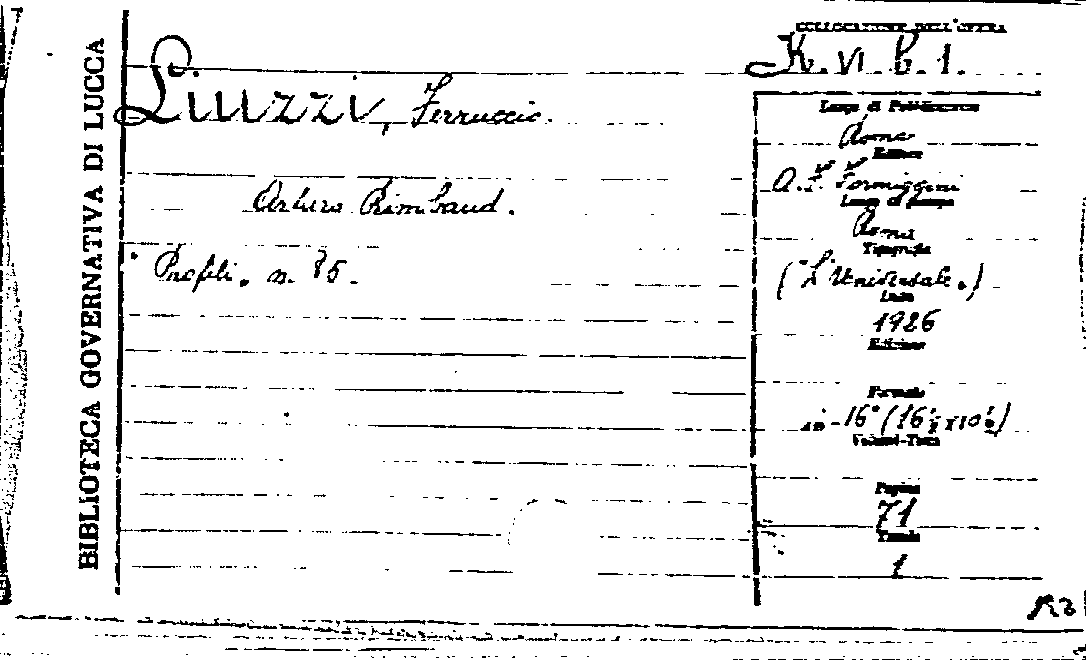 BIBLIOTECA GOVERNATIVA DI LUCCA
COLLOCAZIONE DELL'OPERA
K. VI. b. 1.
Liuzzi, Ferruccio.
Arturo Rimbaud.
Profili. n. 85.
Luogo di Pubblicazione
Roma
Editore
A. F. Formiggini
Luogo di stampa
Roma
Tipografia
("L'Universale.)
Anno
1926
Edizione
Formato
in-16° (16½x10½)
Volumi-Tomi
Pagine
71
Tavole
1